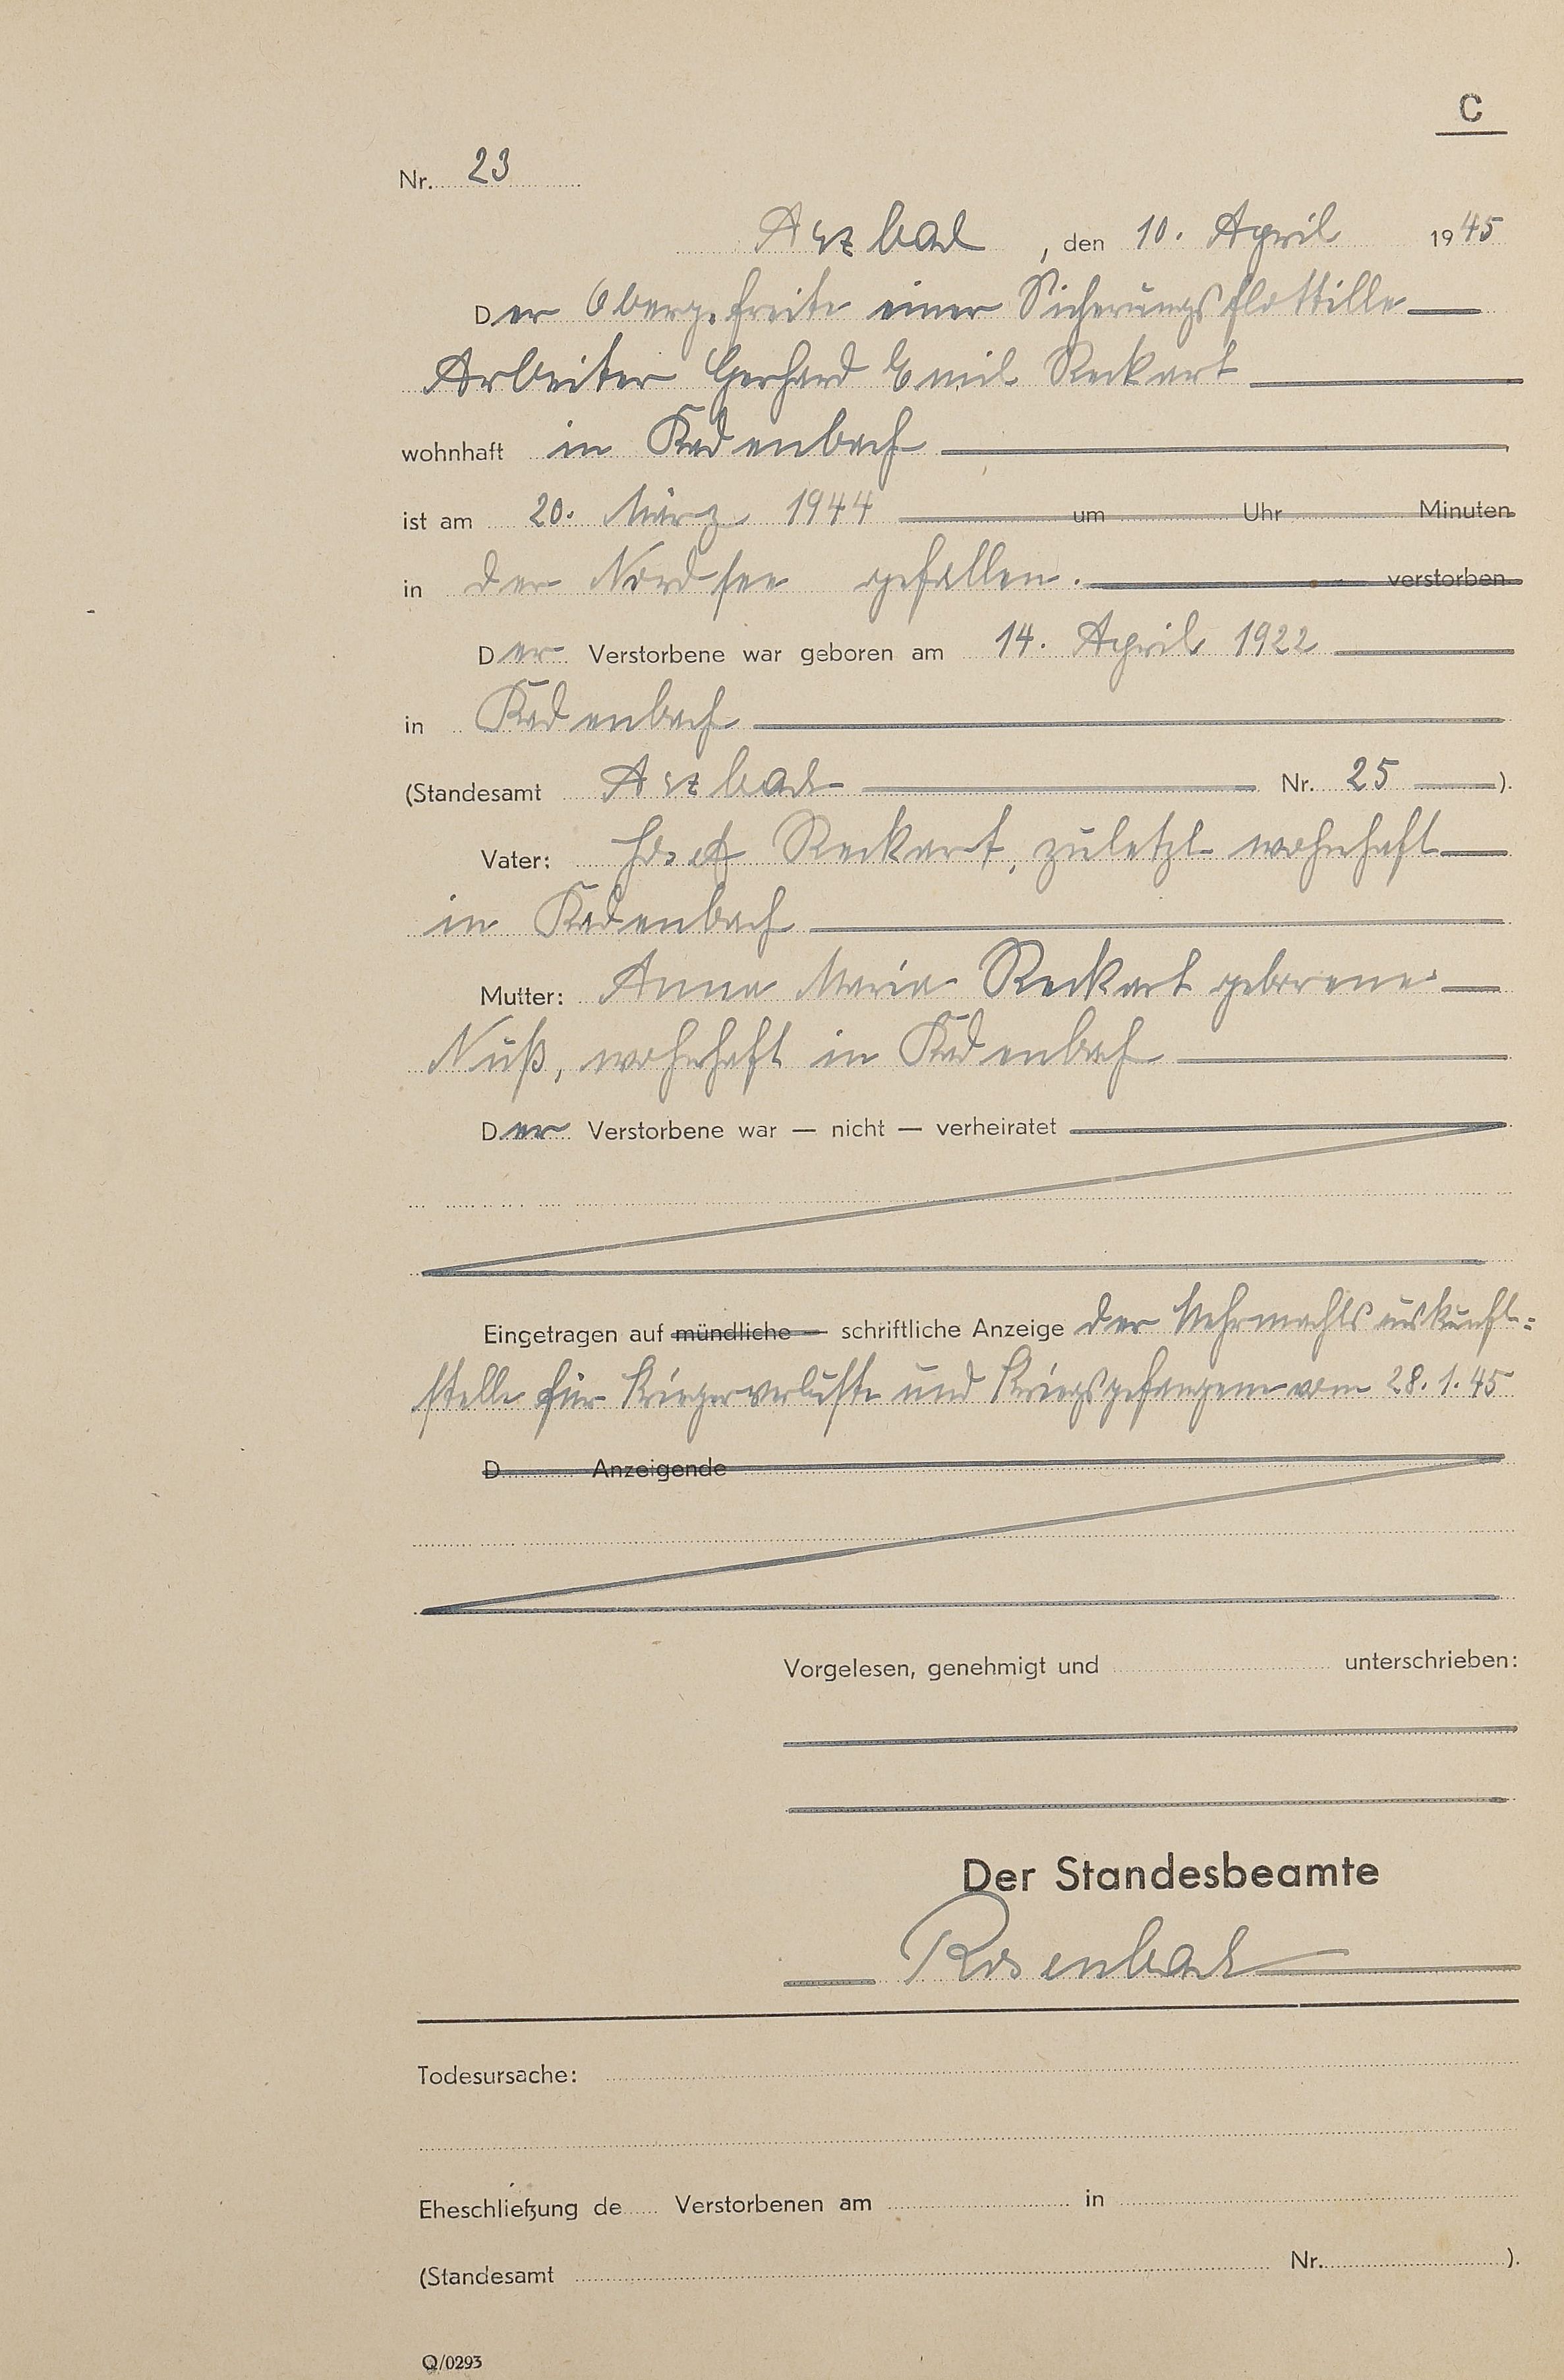 C
Nr. 23
Arzbach, den 10. April 1945
Der Obergefreite einer Sicherungsflottille
Arbeiter Gerhard Emil Reckart
wohnhaft in Kadenbach
ist am 20. März 1944 um Uhr Minuten
in der Nordsee gefallen. verstorben
Der Verstorbene war geboren am 14. April 1922
in Kadenbach
(Standesamt Arzbach Nr. 25 ).
Vater: Josef Reckart, zuletzt wohnhaft
in Kadenbach
Mutter: Anna Maria Reckart geborene
Nüß, wohnhaft in Kadenbach
Der Verstorbene war — nicht — verheiratet
Eingetragen auf mündliche — schriftliche Anzeige der Wehrmachtsauskunft-
stelle für Kriegerverluste und Kriegsgefangene vom 28.1.45
D Anzeigende
Vorgelesen, genehmigt und unterschrieben:
Der Standesbeamte
Rosenbach
Todesursache:
Eheschließung de Verstorbenen am in
(Standesamt Nr. ).
Q/0293